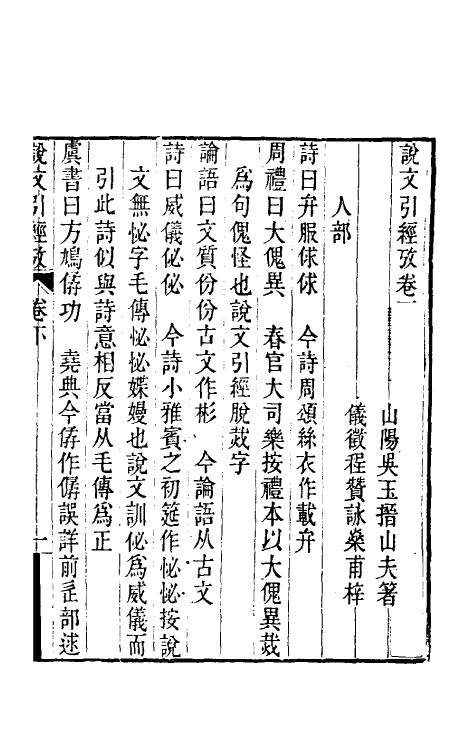 說文引經攷卷一
山陽吳玉搢山夫箸
儀徵程贊詠燊甫梓
人部
詩曰弁服俅俅　今詩周頌絲衣作載弁
周禮曰大傀異　春官大司樂按禮本以大傀異烖
爲句傀怪也說文引經脫烖字
論語曰文質份份古文作彬　今論語从古文
詩曰威儀佖佖　今詩小雅賓之初筵作怭怭按說
文無怭字毛傳怭怭媟嫚也說文訓佖爲威儀而
引此詩似與詩意相反當从毛傳爲正
虞書曰方鳩僝功　堯典今僝作僝誤詳前辵部逑
說文引經攷　卷下　十一